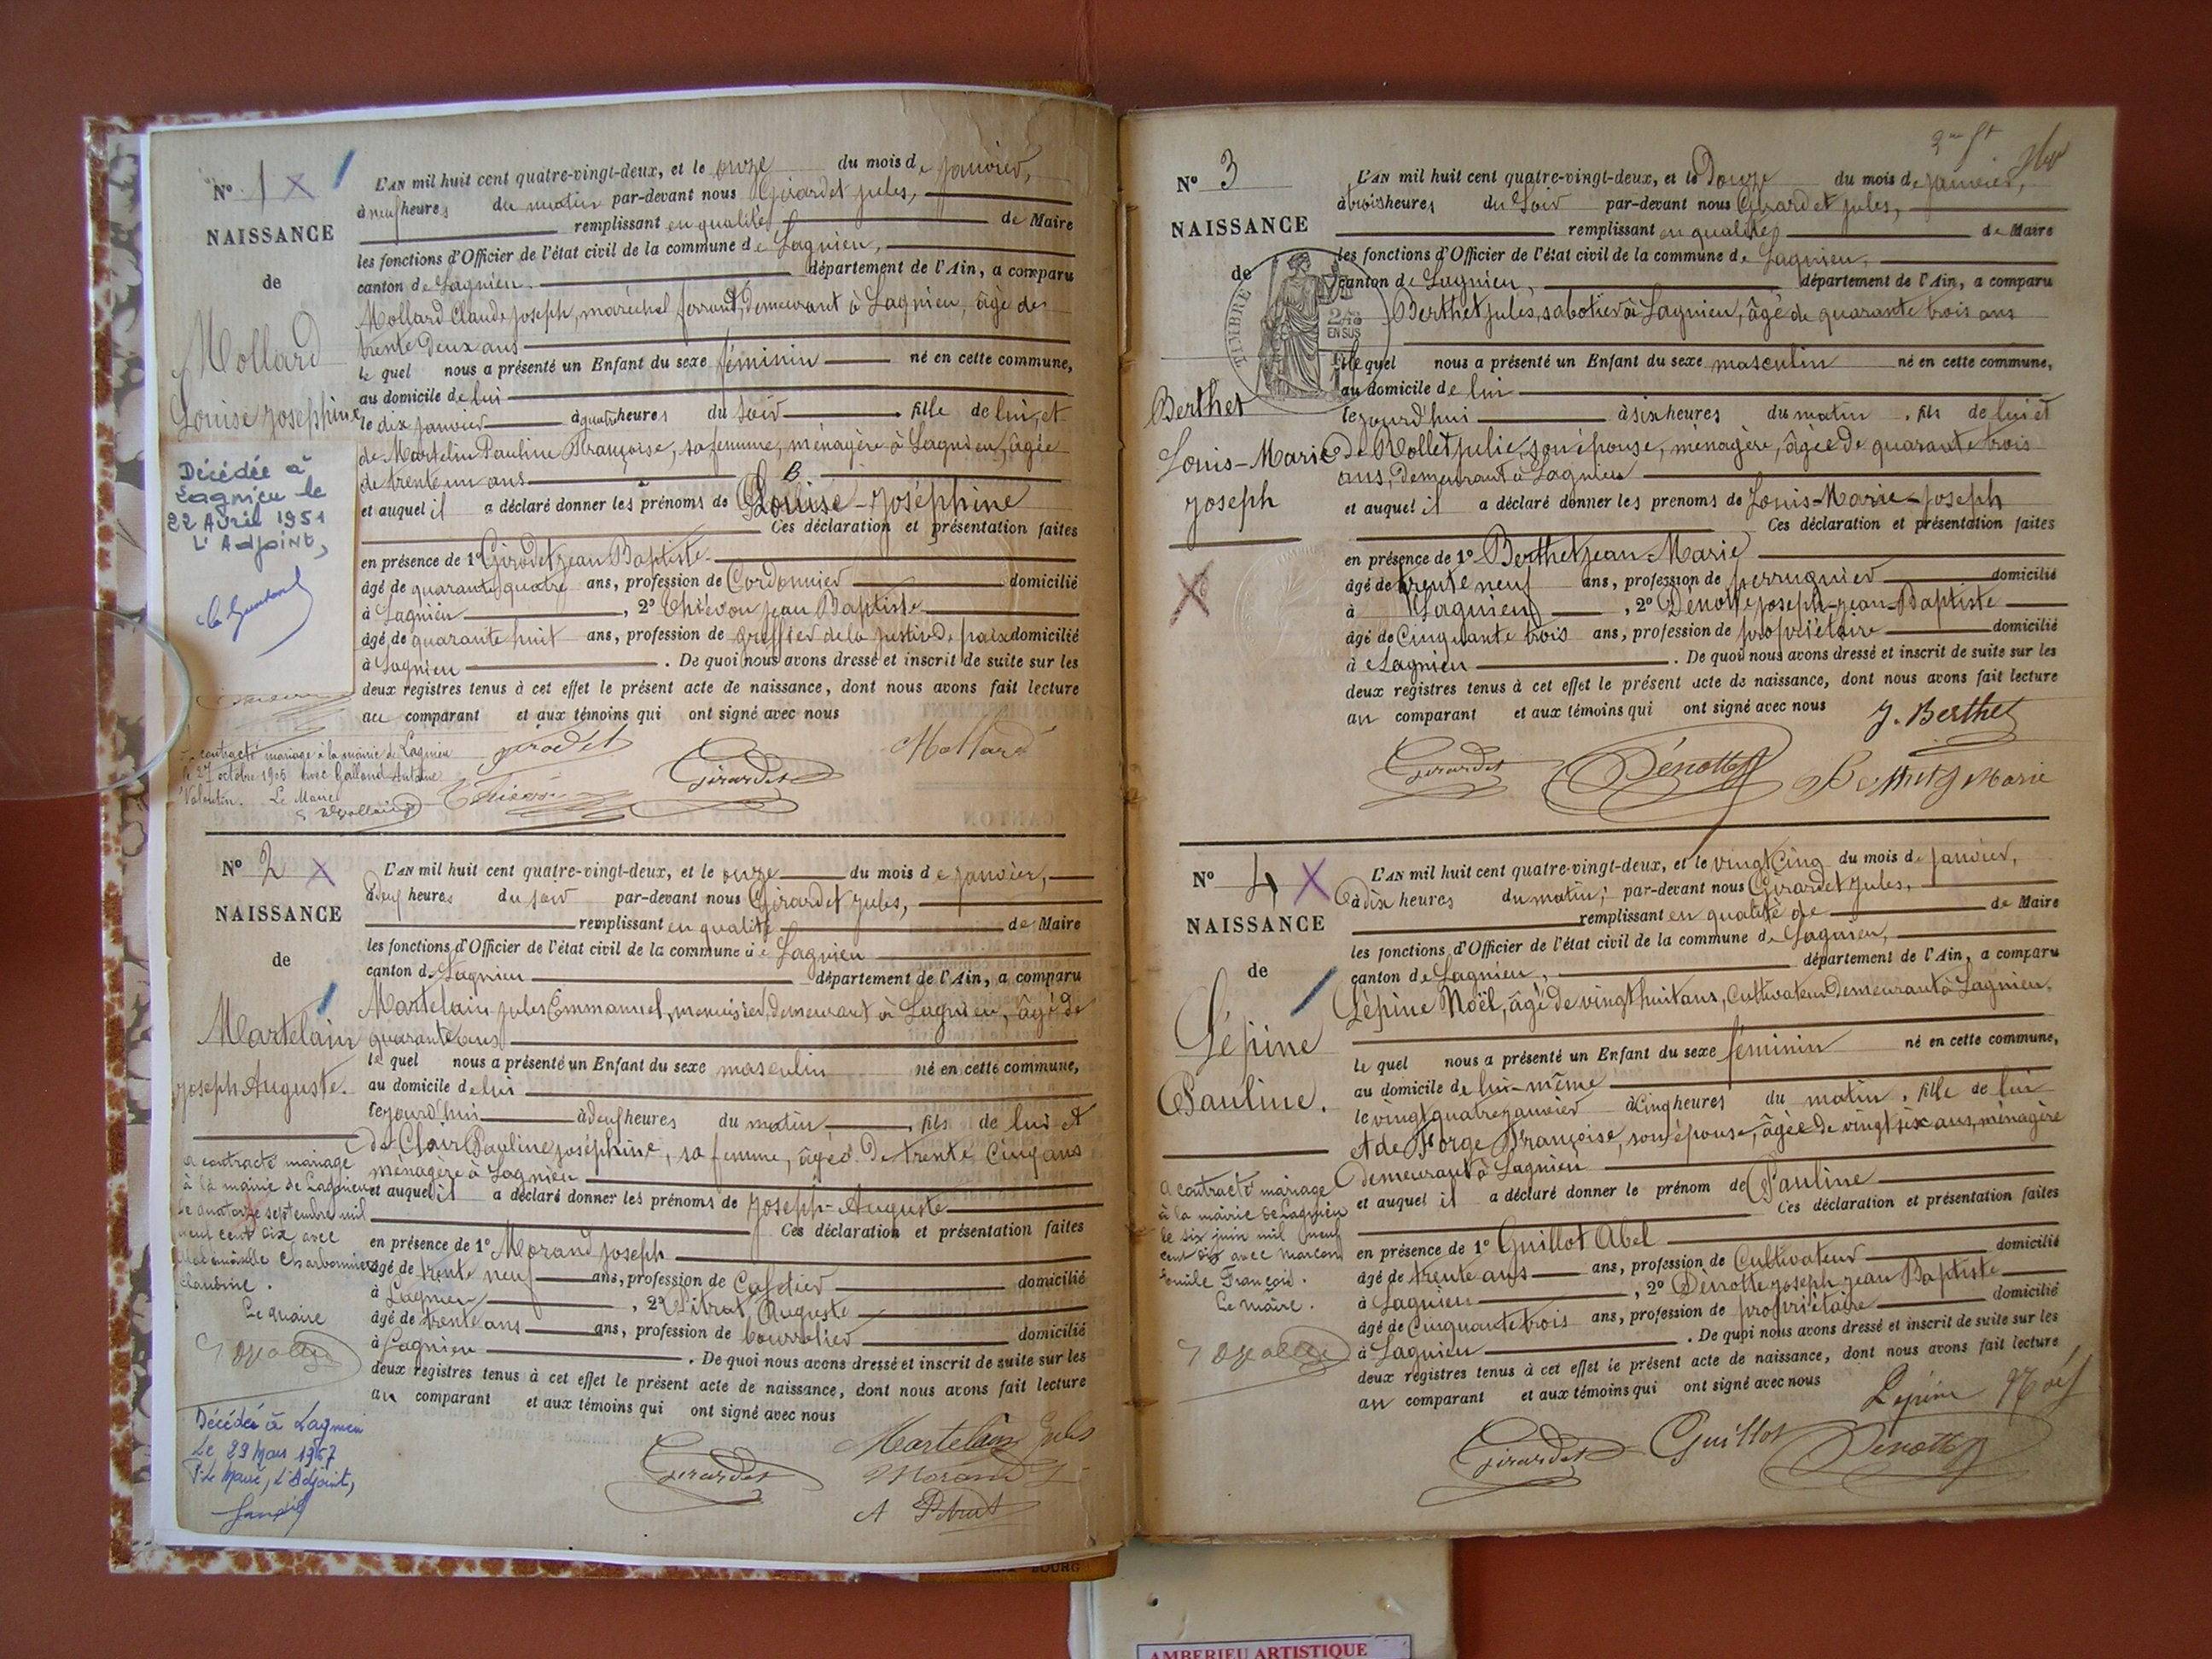 N° 1 X
NAISSANCE
de
Mollard
Louise Joséphine
Décédée à
Lagnieu le
22 Avril 1951
L'Adjoint,
L'AN mil huit cent quatre-vingt-deux, et le onze du mois de janvier,
à neuf heures du matin par-devant nous Girardet Jules,
remplissant en qualité de Maire
les fonctions d'Officier de l'état civil de la commune de Lagnieu,
canton de Lagnieu. département de l'Ain, a comparu
Mollard Claude Joseph, maréchal ferrant, demeurant à Lagnieu, âgé de
trente deux ans
le quel nous a présenté un Enfant du sexe féminin né en cette commune,
au domicile de lui
le dix janvier à quatre heures du soir fille de lui, et
de Martelin Pauline Françoise, sa femme, ménagère à Lagnieu, âgée
de trente un ans
et auquel il a déclaré donner les prénoms de Louise-Joséphine
Ces déclaration et présentation faites
en présence de 1° Girodet Jean Baptiste
âgé de quarante quatre ans, profession de Cordonnier domicilié
à Lagnieu, 2° Thiévon Jean Baptiste
âgé de quarante huit ans, profession de greffier de la justice de paix domicilié
à Lagnieu. De quoi nous avons dressé et inscrit de suite sur les
deux registres tenus à cet effet le présent acte de naissance, dont nous avons fait lecture
au comparant et aux témoins qui ont signé avec nous
contracté mariage à la mairie de Lagnieu
le 27 octobre 1906 avec Galland Antoine
Valentin. Le Maire
Girodet
Girardet
Mollard
N° 2 X
NAISSANCE
de
Martelain
Joseph Auguste.
a contracté mariage
à la mairie de Lagnieu
le quatorze septembre mil
neuf cent dix avec
Charbonnier
Claudine.
Le Maire
Décédé à Lagnieu
Le 29 Mars 1967
P. le Maire, L'Adjoint,
L'AN mil huit cent quatre-vingt-deux, et le onze du mois de janvier,
à neuf heures du soir par-devant nous Girardet Jules,
remplissant en qualité de Maire
les fonctions d'Officier de l'état civil de la commune de Lagnieu
canton de Lagnieu département de l'Ain, a comparu
Martelain Jules Emmanuel, menuisier, demeurant à Lagnieu, âgé de
quarante ans
le quel nous a présenté un Enfant du sexe masculin né en cette commune,
au domicile de lui
le jourd'hui à neuf heures du matin, fils de lui et
de Clair Pauline Joséphine, sa femme, âgée de trente cinq ans
ménagère à Lagnieu
et auquel il a déclaré donner les prénoms de Joseph-Auguste
Ces déclaration et présentation faites
en présence de 1° Morand Joseph
âgé de trente neuf ans, profession de Cafetier domicilié
à Lagnieu, 2° Pitrat Auguste
âgé de trente ans ans, profession de bourrelier domicilié
à Lagnieu. De quoi nous avons dressé et inscrit de suite sur les
deux registres tenus à cet effet le présent acte de naissance, dont nous avons fait lecture
au comparant et aux témoins qui ont signé avec nous
Girardet
Martelain Jules
Morand J
A Pitrat
N° 3
NAISSANCE
de
TIMBRE
2/10
EN SUS
Berthet
Louis-Marie
Joseph
X
L'AN mil huit cent quatre-vingt-deux, et le Douze du mois de janvier,
à trois heures du soir par-devant nous Girardet Jules,
remplissant en qualité de Maire
les fonctions d'Officier de l'état civil de la commune de Lagnieu,
canton de Lagnieu, département de l'Ain, a comparu
Berthet Jules, sabotier à Lagnieu, âgé de quarante trois ans
le quel nous a présenté un Enfant du sexe masculin né en cette commune,
au domicile de lui
le jourd'hui à six heures du matin, fils de lui et
de Mollet Julie, son épouse, ménagère, âgée de quarante trois
ans, demeurant à Lagnieu
et auquel il a déclaré donner les prénoms de Louis-Marie-Joseph
Ces déclaration et présentation faites
en présence de 1° Berthet Jean-Marie
âgé de trente neuf ans, profession de perruquier domicilié
à Lagnieu, 2° Dénotte Joseph-Jean-Baptiste
âgé de Cinquante trois ans, profession de propriétaire domicilié
à Lagnieu. De quoi nous avons dressé et inscrit de suite sur les
deux registres tenus à cet effet le présent acte de naissance, dont nous avons fait lecture
au comparant et aux témoins qui ont signé avec nous
J. Berthet
Girardet
Dénotte
Marie
N° 4 X
NAISSANCE
de
Lépine
Pauline.
a contracté mariage
à la mairie de Lagnieu
le six juin mil neuf
cent dix avec Marcon
Emile François.
Le Maire.
L'AN mil huit cent quatre-vingt-deux, et le vingt cinq du mois de janvier,
à dix heures du matin, par-devant nous Girardet Jules,
remplissant en qualité de de Maire
les fonctions d'Officier de l'état civil de la commune de Lagnieu,
canton de Lagnieu, département de l'Ain, a comparu
Lépine Noël, âgé de vingt huit ans, Cultivateur demeurant à Lagnieu.
le quel nous a présenté un Enfant du sexe féminin né en cette commune,
au domicile de lui-même
le vingt quatre janvier à Cinq heures du matin, fille de lui
et de Forge Françoise, son épouse, âgée de vingt six ans, ménagère
demeurant à Lagnieu
et auquel il a déclaré donner le prénom de Pauline
Ces déclaration et présentation faites
en présence de 1° Guillot Abel
âgé de trente ans ans, profession de Cultivateur domicilié
à Lagnieu, 2° Dénotte Joseph Jean Baptiste
âgé de Cinquante trois ans, profession de propriétaire domicilié
à Lagnieu. De quoi nous avons dressé et inscrit de suite sur les
deux registres tenus à cet effet le présent acte de naissance, dont nous avons fait lecture
au comparant et aux témoins qui ont signé avec nous
Lépine Noël
Girardet
Guillot
Dénotte
BOURG
AMBERIEU ARTISTIQUE